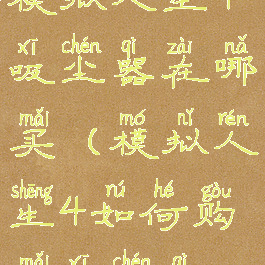 模拟人生4
xī chén qì zài nǎ
吸尘器在哪
mǎi mó nǐ rén
买(模拟人
shēng rú hé gòu
生4如何购
mǎi xī chén qì